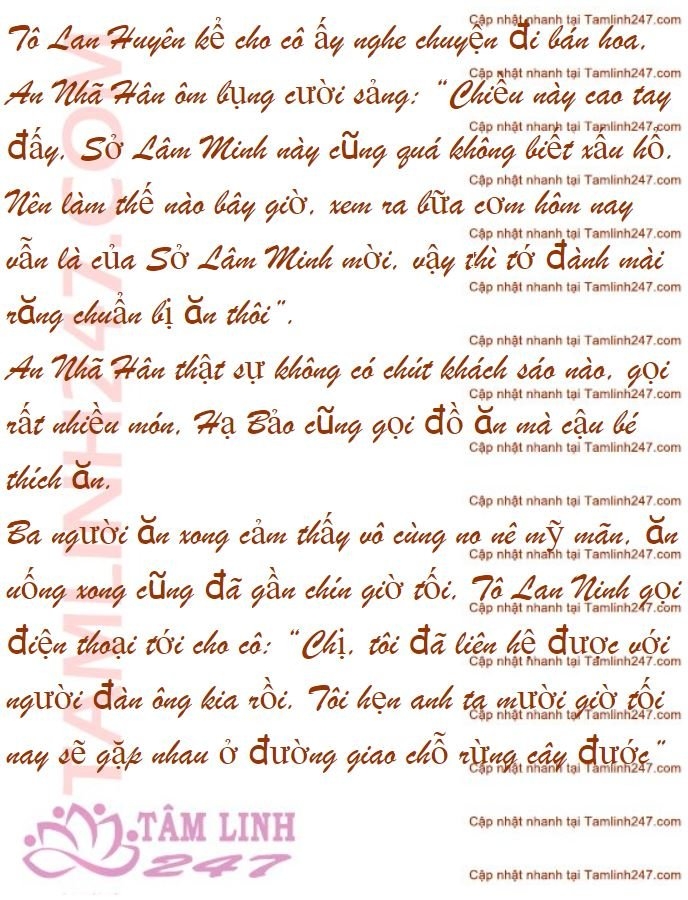 Cập nhật nhanh tại Tamlinh247.com
Tô Lan Huyên kể cho cô ấy nghe chuyện đi bán hoa,
Cập nhật nhanh tại Tamlinh247.com
An Nhã Hân ôm bụng cười sảng: “Chiêu này cao tay
Cập nhật nhanh tại Tamlinh247.com
đấy, Sở Lâm Minh này cũng quá không biết xấu hổ.
Cập nhật nhanh tại Tamlinh247.com
Nên làm thế nào bây giờ, xem ra bữa cơm hôm nay
Cập nhật nhanh tại Tamlinh247.com
vẫn là của Sở Lâm Minh mời, vậy thì tớ đành mài
Cập nhật nhanh tại Tamlinh247.com
răng chuẩn bị ăn thôi”.
Cập nhật nhanh tại Tamlinh247.com
An Nhã Hân thật sự không có chút khách sáo nào, gọi
Cập nhật nhanh tại Tamlinh247.com
rất nhiều món, Hạ Bảo cũng gọi đồ ăn mà cậu bé
Cập nhật nhanh tại Tamlinh247.com
thích ăn.
Cập nhật nhanh tại Tamlinh247.com
Ba người ăn xong cảm thấy vô cùng no nê mỹ mãn, ăn
Cập nhật nhanh tại Tamlinh247.com
uống xong cũng đã gần chín giờ tối, Tô Lan Ninh gọi
Cập nhật nhanh tại Tamlinh247.com
điện thoại tới cho cô: “Chị, tôi đã liên hệ được với
Cập nhật nhanh tại Tamlinh247.com
người đàn ông kia rồi. Tôi hẹn anh ta mười giờ tối
Cập nhật nhanh tại Tamlinh247.com
nay sẽ gặp nhau ở đường giao chỗ rừng cây đước”
Cập nhật nhanh tại Tamlinh247.com
TAMLINH247.COM
TÂM LINH
247
Cập nhật nhanh tại Tamlinh247.com
Cập nhật nhanh tại Tamlinh247.com